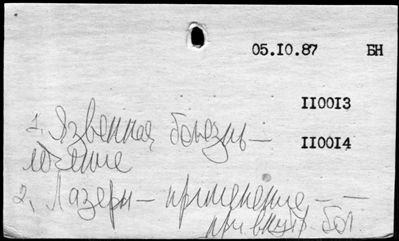 05.10.87 БН
110013
1. Язвенная болезнь —
110014
лечение
2. Лазеры — применение — —
при внутр. бол.